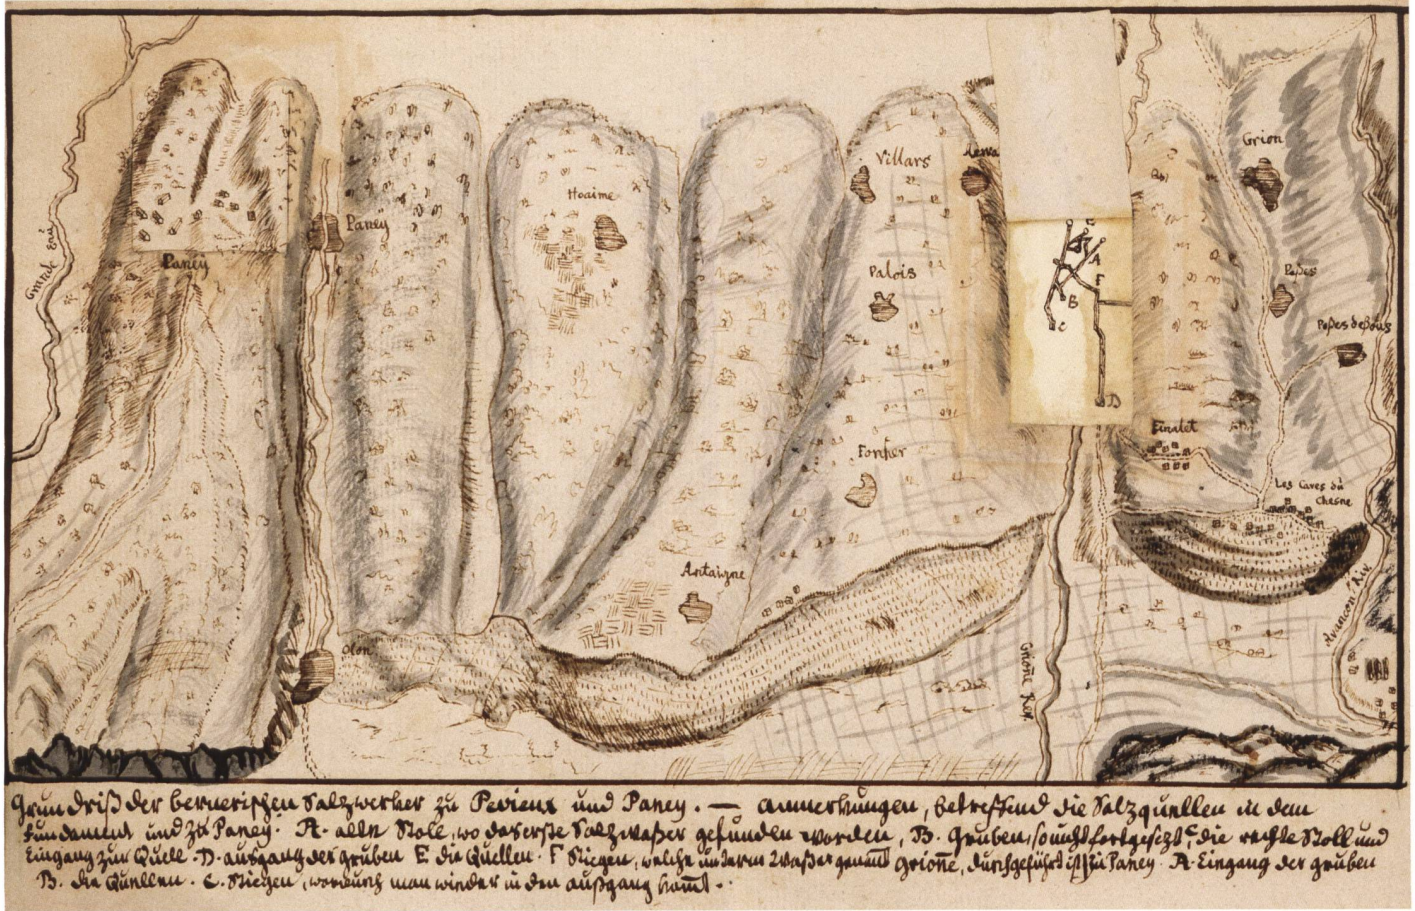 Grande Eau
Paneÿ
Paneÿ
Hoaime
Villars
Palois
Forcher
Antaigne
Olon
Grion
Finalet
Les Caves du
Chesne
Grioñe Riv
Avancon Riv
E
A
F
B
C
D
Grundriß der bernerischen Salzwercker zu Pevieux und Paney. — Anmerkungen, betreffend die Salzquellen in dem
Fundament und zu Paney. A. alte Stoll, wo das erste Salzwaßer gefunden worden, B. Gruben, so nicht fortgesezt, C. die rechte Stoll und
Eingang zur Quell. D. außgang der gruben E. die Quellen. F Stiegen, welche unterm Waßer genannt Grioñe, durchgeführt ist zu Paney. A. Eingang der gruben
B. die Quellen. C. Stiegen, wordurch man wieder in den außgang komt.